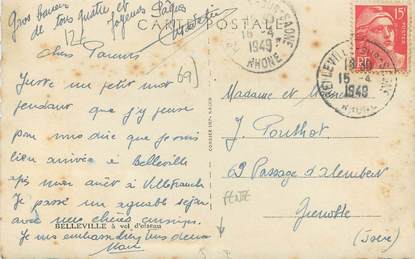 Gros baisers
de tous quatre et
Joyeuses Pâques
CARTE POSTALE
BELLEVILLE-SUR-SAONE
15-4
1949
RHONE
15F
RF
BELLEVILLE-SUR-SAONE
18H30
15-4
1949
RHONE
124
69
Chers Parrains
Juste un petit mot
pendant que j'y pense
pour vous dire que je suis
bien arrivée à Belleville
après mon arrêt à Villefranche
Je passe un agréable séjour
avec mes chères cousines
Je vous embrasse bien tous deux
BELLEVILLE à vol d'oiseau
Madame et Monsieur
J. Ponthot
62 Passage d'Alembert
Grenoble
(Isère)